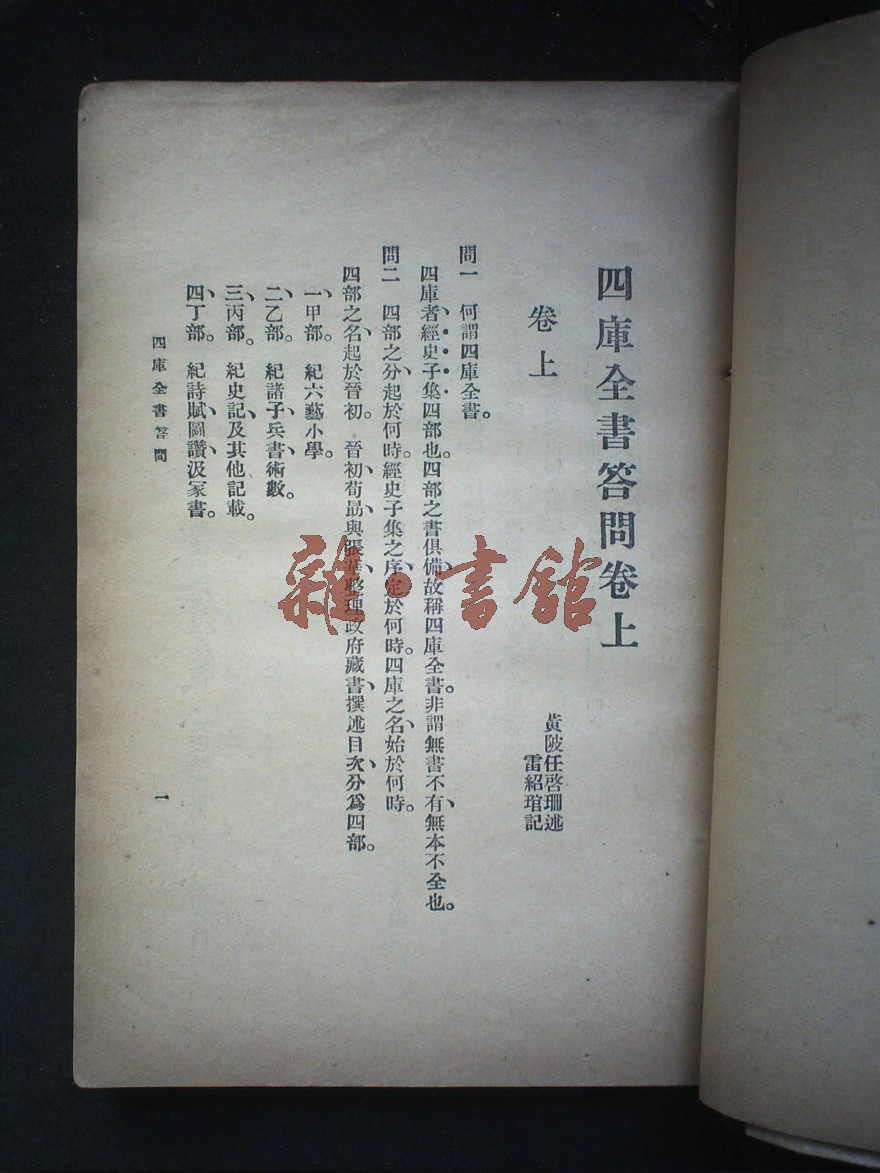 四庫全書答問卷上
卷上
黃陂任啓珊述
雷紹琯記
問一　何謂四庫全書。
四庫者、經・史・子・集・四部也。四部之書俱備、故稱四庫全書。非謂無書不有、無本不全也。
問二　四部之分、起於何時、經史子集之序、定於何時。四庫之名、始於何時。
四部之名、起於晉初。　晉初、荀勗與張華、整理政府藏書、撰述目次、分爲四部。
一、甲部。　紀六藝小學。
二、乙部。　紀諸子、兵書、術數。
三、丙部。　紀史記、及其他記載。
四、丁部。　紀詩賦、圖讚、汲冢書。
四庫全書答問
一
雜・書館